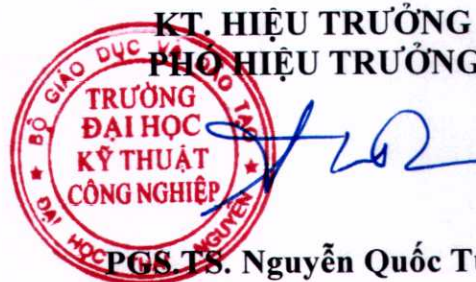 KT. HIỆU TRƯỞNG
PHÓ HIỆU TRƯỞNG
BỘ GIÁO DỤC VÀ ĐÀO TẠO
TRƯỜNG
ĐẠI HỌC
KỸ THUẬT
CÔNG NGHIỆP
ĐẠI HỌC THÁI NGUYÊN
PGS.TS. Nguyễn Quốc